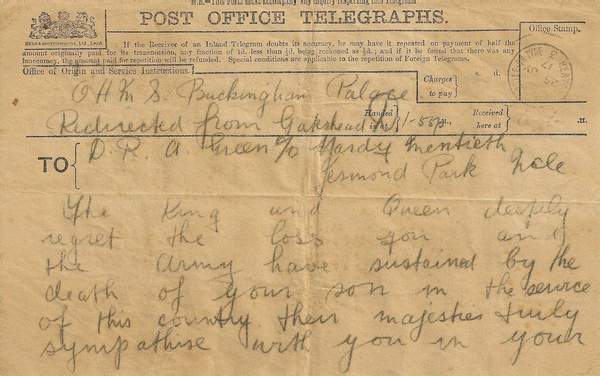 POST OFFICE TELEGRAPHS.
If the Receiver of an Inland Telegram doubts its accuracy, he may have it repeated on payment of half the
amount originally paid for its transmission, any fraction of 1d. less than ½d. being reckoned as ½d.; and if it be found that there was any
inaccuracy, the amount paid for repetition will be refunded. Special conditions are applicable to the repetition of Foreign Telegrams.
Office Stamp.
Office of Origin and Service Instructions.
Charges to pay
s. d.
O H M S. Buckingham Palace
Redirected from Gateshead
Handed in at
1-55 p.
Received here at
M.
TO
D. R. A. Green c/o Hardy
Jesmond Park
The King and Queen deeply
regret the loss you and
the Army have sustained by the
death of your son in the service
of this country. their majesties truly
sympathise with you in your